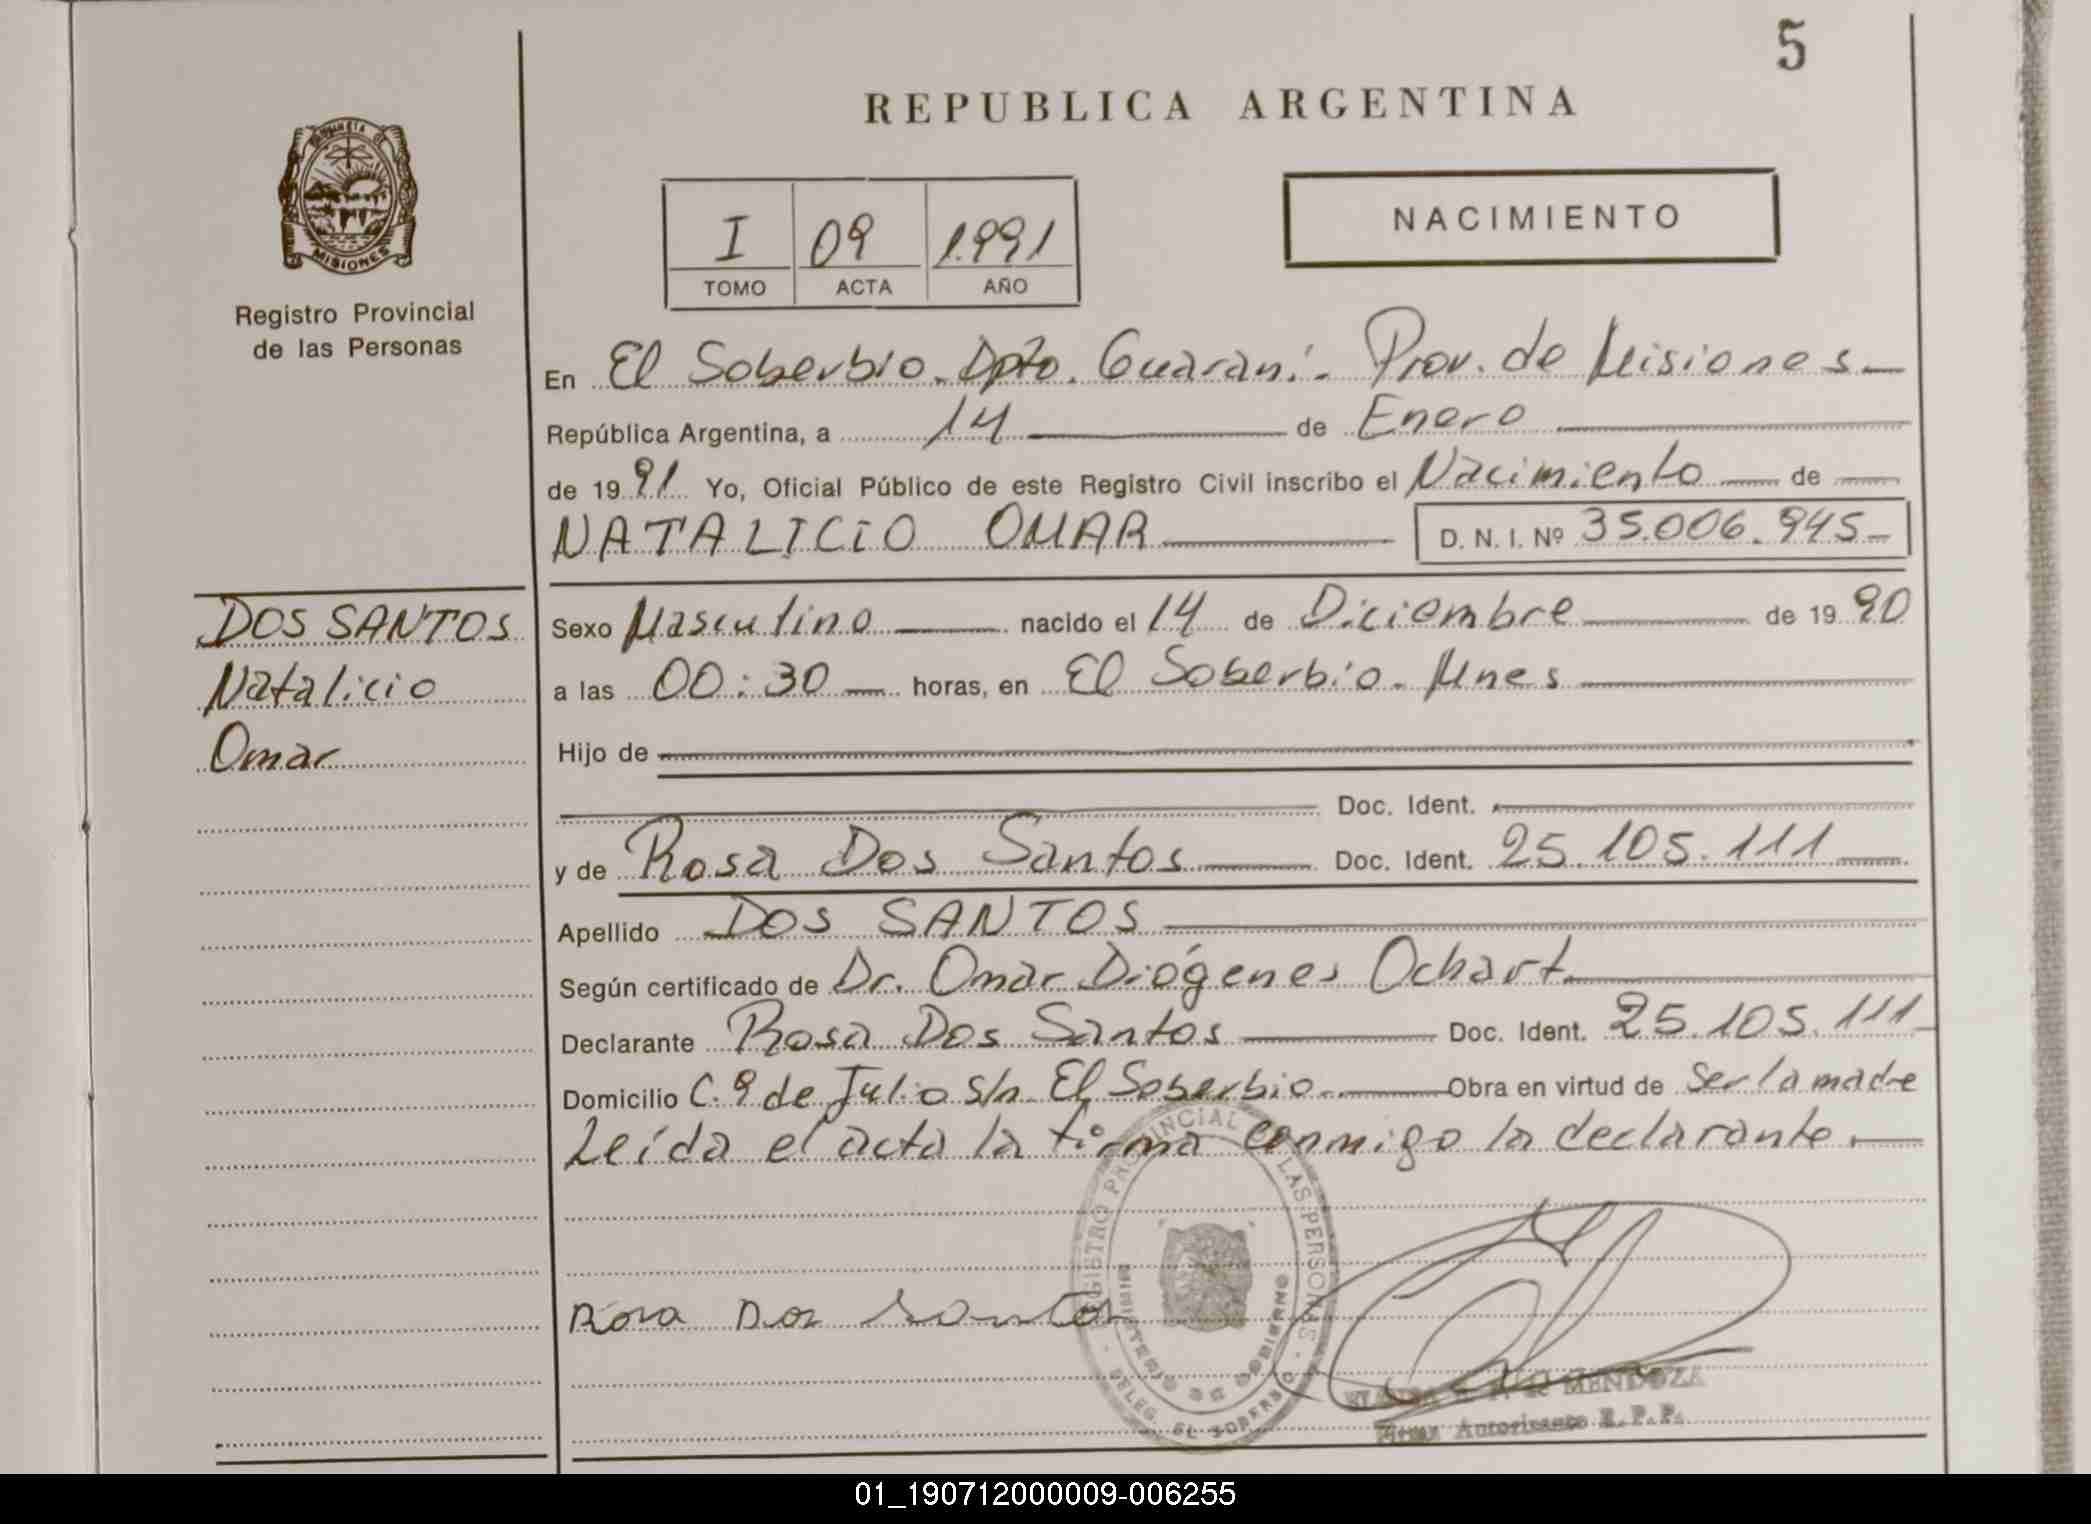 5
REPUBLICA ARGENTINA
MISIONES
Registro Provincial
de las Personas
I 09 1.991
TOMO ACTA AÑO
NACIMIENTO
En El Soberbio. Dpto. Guaraní. Prov. de Misiones
República Argentina, a 14 de Enero
de 1991 Yo, Oficial Público de este Registro Civil inscribo el Nacimiento de
NATALICIO OMAR D. N. I. Nº 35.006.945
DOS SANTOS
Natalicio
Omar
Sexo Masculino nacido el 14 de Diciembre de 1990
a las 00:30 horas, en El Soberbio. Mnes
Hijo de
Doc. Ident.
y de Rosa Dos Santos Doc. Ident. 25.105.111
Apellido DOS SANTOS
Según certificado de Dr. Omar Diógenes Ochart
Declarante Rosa Dos Santos Doc. Ident. 25.105.111
Domicilio C. 9 de Julio S/n El Soberbio. Obra en virtud de ser la madre
Leída el acta la firma conmigo la declarante.
REGISTRO PROVINCIAL LAS PERSONAS
MINISTERIO DE GOBIERNO
DELEG. EL SOBERBIO
Rosa Dos Santos
MENDOZA
Autorizante R. P. P.
01_190712000009-006255